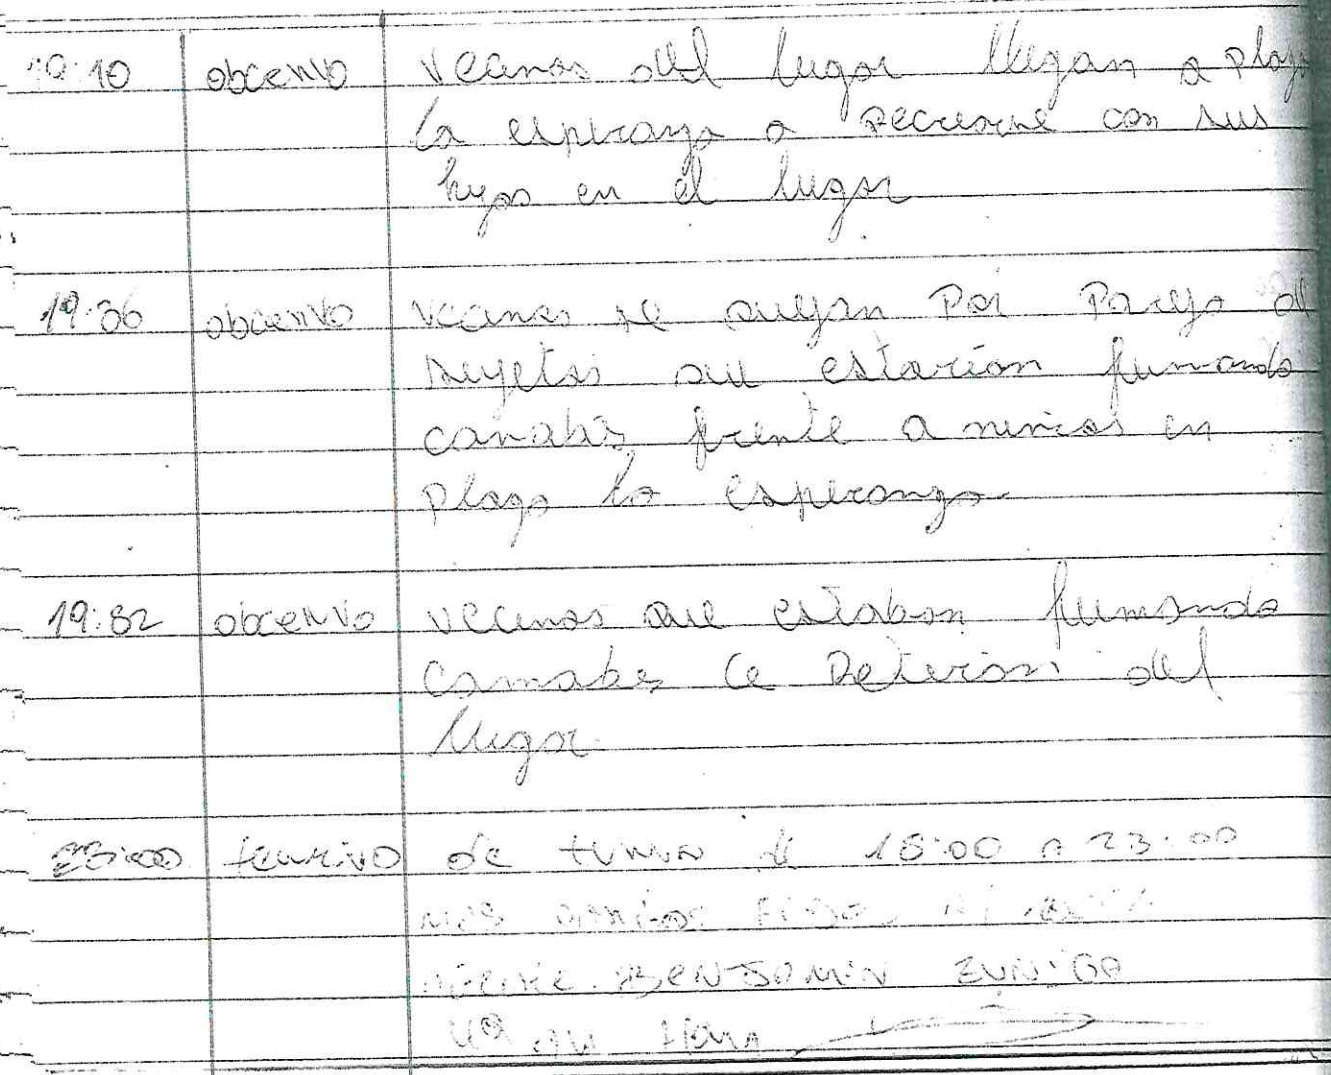 19:10 obcervo vecinos del lugar llegan a plaza
la esperanza a recrearse con sus
hijos en el lugar
19:06 obcervo vecinos se quejan por pareja de
sujetos que estarian fumando
canabis frente a menios en
plaza la esperanza
19:82 obcervo vecinos que estaban fumando
canabis ce Retiran del
lugar
23:00 termino de turno de 15:00 a 23:00
BENJAMIN ZUNIGA